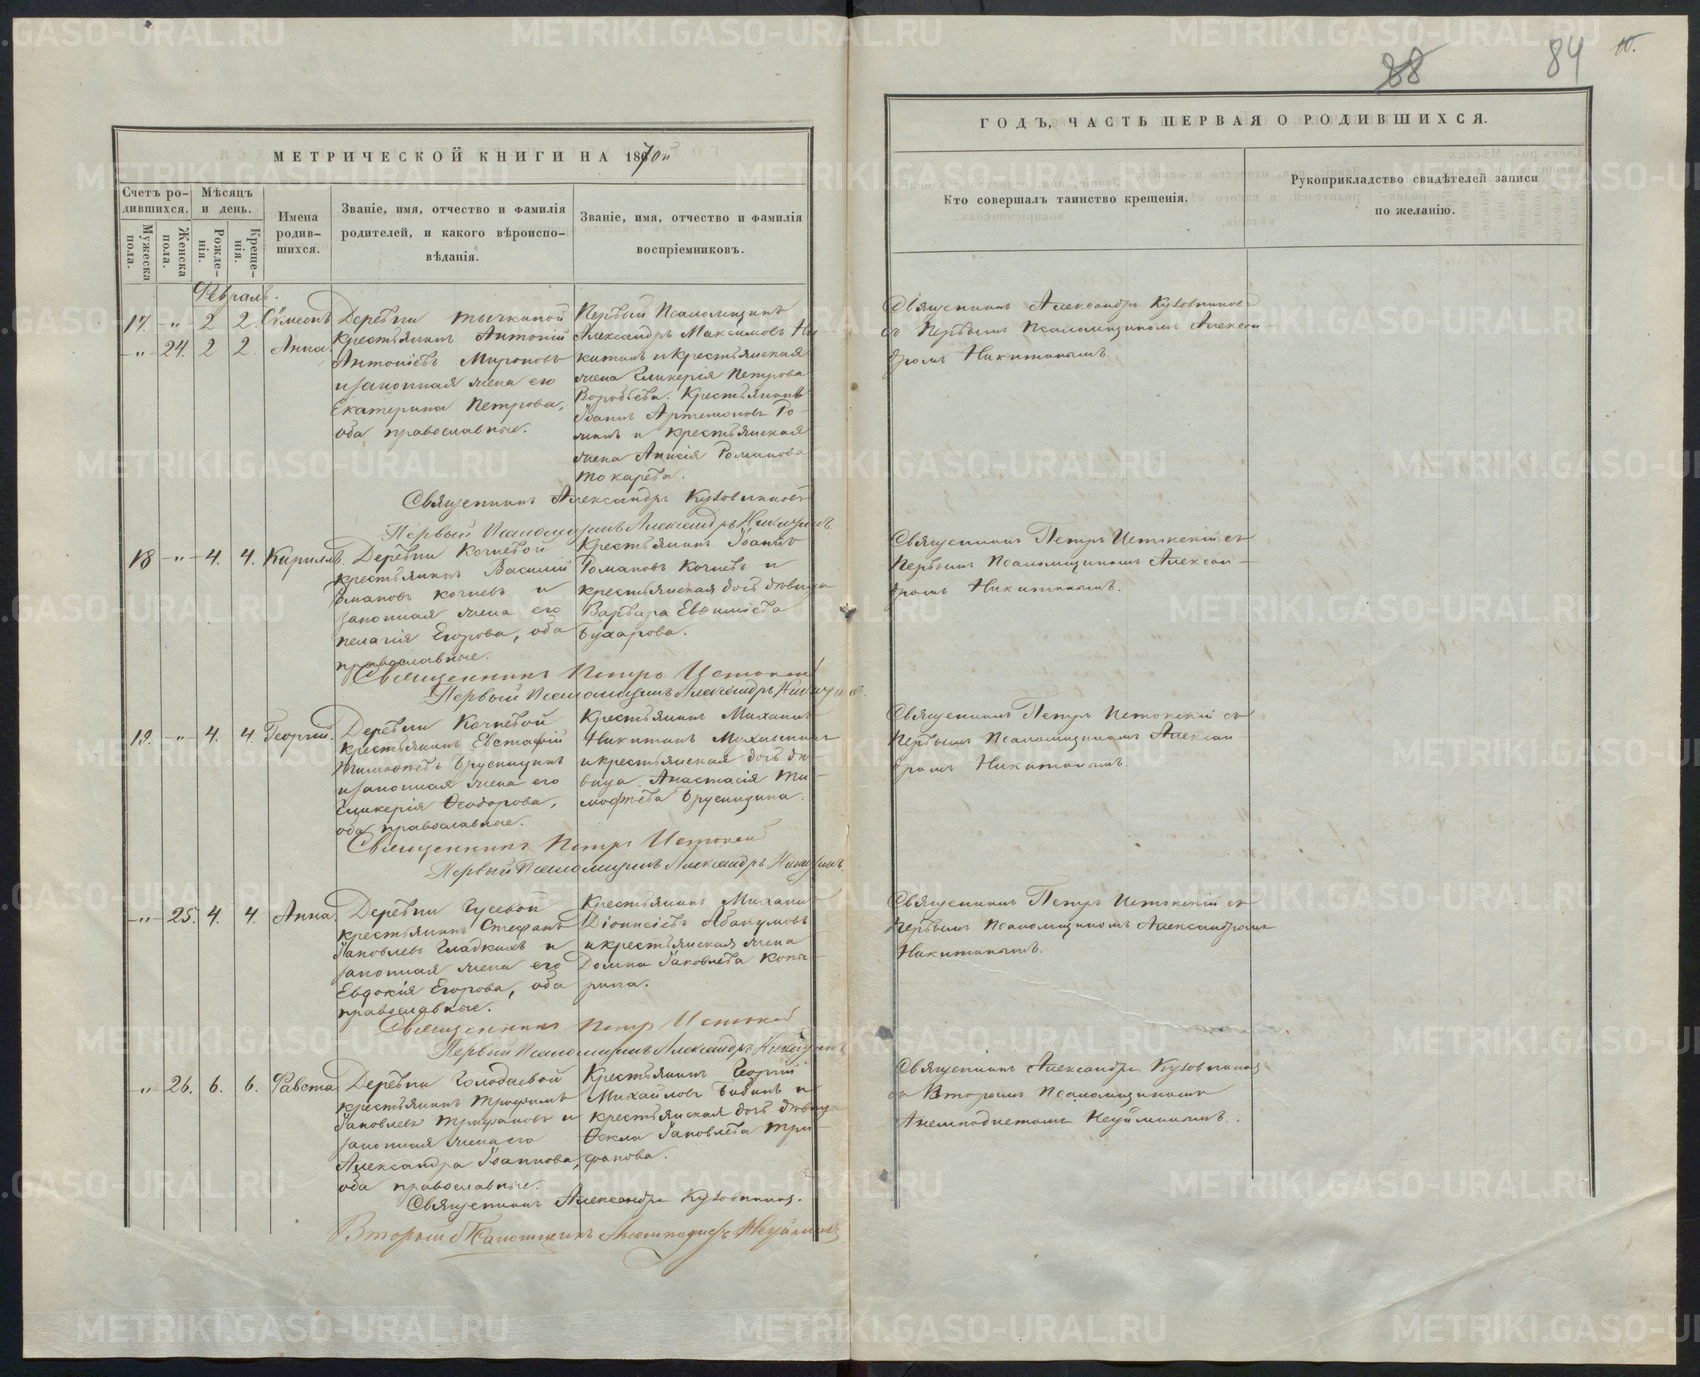 88
84
МЕТРИЧЕСКОЙ КНИГИ НА 1870й
ГОДЪ, ЧАСТЬ ПЕРВАЯ О РОДИВШИХСЯ.
Счетъ ро-
дившихся.
Мужеска
пола.
Женска
пола.
Мѣсяцъ
и день.
Рожде-
нія.
Креще-
нія.
Имена
родив-
шихся.
Званіе, имя, отчество и фамилія
родителей, и какого вѣроиспо-
вѣданія.
Званіе, имя, отчество и фамилія
воспріемниковъ.
Кто совершалъ таинство крещенія.
Рукоприкладство свидѣтелей записи
по желанію.
Февраль.
17. -"- 2 2. Сѵмеонъ
-"- 24. 2 2. Анна
Деревни Тычкиной
крестьянинъ Антоній
Антоніевъ Мироновъ
и законная жена его
Екатерина Петрова,
оба православные.
Первый Псаломщикъ
Александръ Максимовъ Ни-
китинъ и крестьянская
жена Гликерія Петрова
Воробьева. Крестьянинъ
Іоаннъ Артемоновъ Ро-
минъ и крестьянская
жена Анисія Романова
Токарева.
Священникъ Александръ Кузовниковъ
съ Первымъ Псаломщикомъ Алексан-
дромъ Никитинымъ
Священникъ Александръ Кузовниковъ
Первый Псаломщикъ Александръ Никитинъ.
18 -"- 4. 4. Кириллъ.
Деревни Кочневой
крестьянинъ Василій
Романовъ Кочневъ и
законная жена его
Пелагія Егорова, оба
православные.
Крестьянинъ Іоаннъ
Романовъ Кочневъ и
крестьянская дочь дѣвица
Варвара Евѳиміева
Бухарова.
Священникъ Петръ Истокскій съ
Первымъ Псаломщикомъ Алексан-
дромъ Никитинымъ.
Священникъ Петръ Истокскій
Первый Псаломщикъ Александръ Никитинъ.
19. -"- 4. 4. Георгій.
Деревни Кочневой
крестьянинъ Евстафій
Тимофѣевъ Брусницынъ
и законная жена его
Гликерія Ѳеодорова,
оба православные.
Крестьянинъ Михаилъ
Никитинъ
и крестьянская дочь дѣ-
вица Анастасія Ти-
мофѣева Брусницина.
Священникъ Петръ Истокскій съ
Первымъ Псаломщикомъ Алексан-
дромъ Никитинымъ.
Священникъ Петръ Истокскій
Первый Псаломщикъ Александръ Никитинъ.
-"- 25. 4. 4. Анна.
Деревни Гусевой
крестьянинъ Стефанъ
Іаковлевъ Гладкихъ и
законная жена его
Евдокія Егорова, оба
православные.
Крестьянинъ Михаилъ
Діонисіевъ Абакумовъ
и крестьянская жена
Домна Іаковлева Копы-
рина.
Священникъ Петръ Истокскій съ
Первымъ Псаломщикомъ Александромъ
Никитинымъ.
Священникъ Петръ Истокскій
Первый Псаломщикъ Александръ Никитинъ
" 26. 6. 6. Фавста.
Деревни Голодаевой
крестьянинъ Трофимъ
Іаковлевъ Трифановъ и
законная жена его
Александра Іоаннова,
оба православные.
Крестьянинъ Георгій
Михайловъ Бабинъ и
крестьянская дочь дѣвица
Ѳекла Іаковлева Три-
фанова.
Священникъ Александръ Кузовниковъ
съ Вторымъ Псаломщикомъ
Анемподистомъ Неуйминымъ.
Священникъ Александръ Кузовниковъ.
Второй Псаломщикъ Анемподистъ Неуйминъ
METRIKI.GASO-URAL.RU